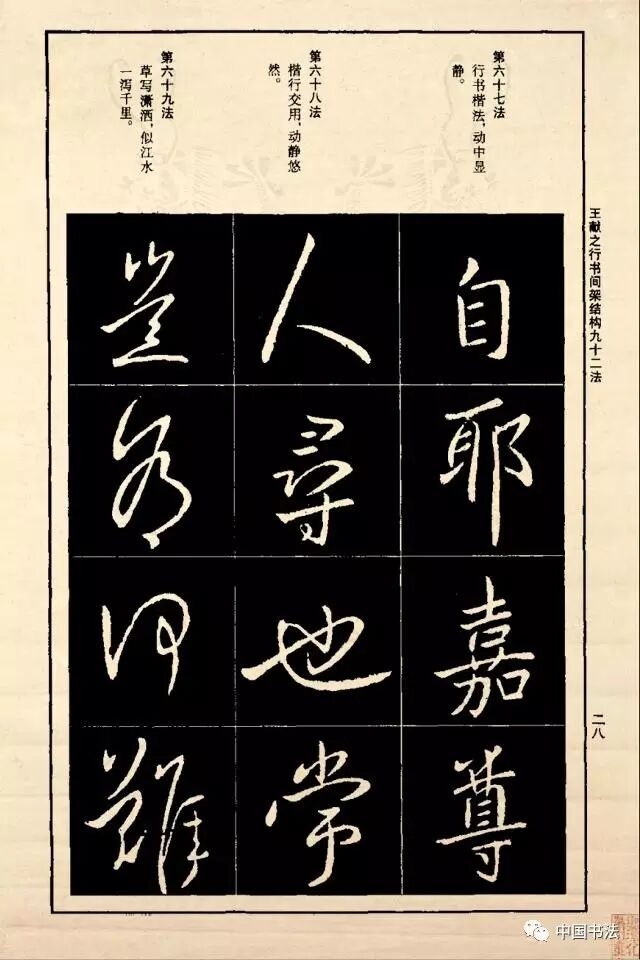 王献之行书间架结构九十二法
二八
第六十七法
行书楷法，动中显
静。
第六十八法
楷行交用，动静悠
然。
第六十九法
草写潇洒，似江水
一泻千里。
自耶嘉尊
人尋也常
難
中国书法